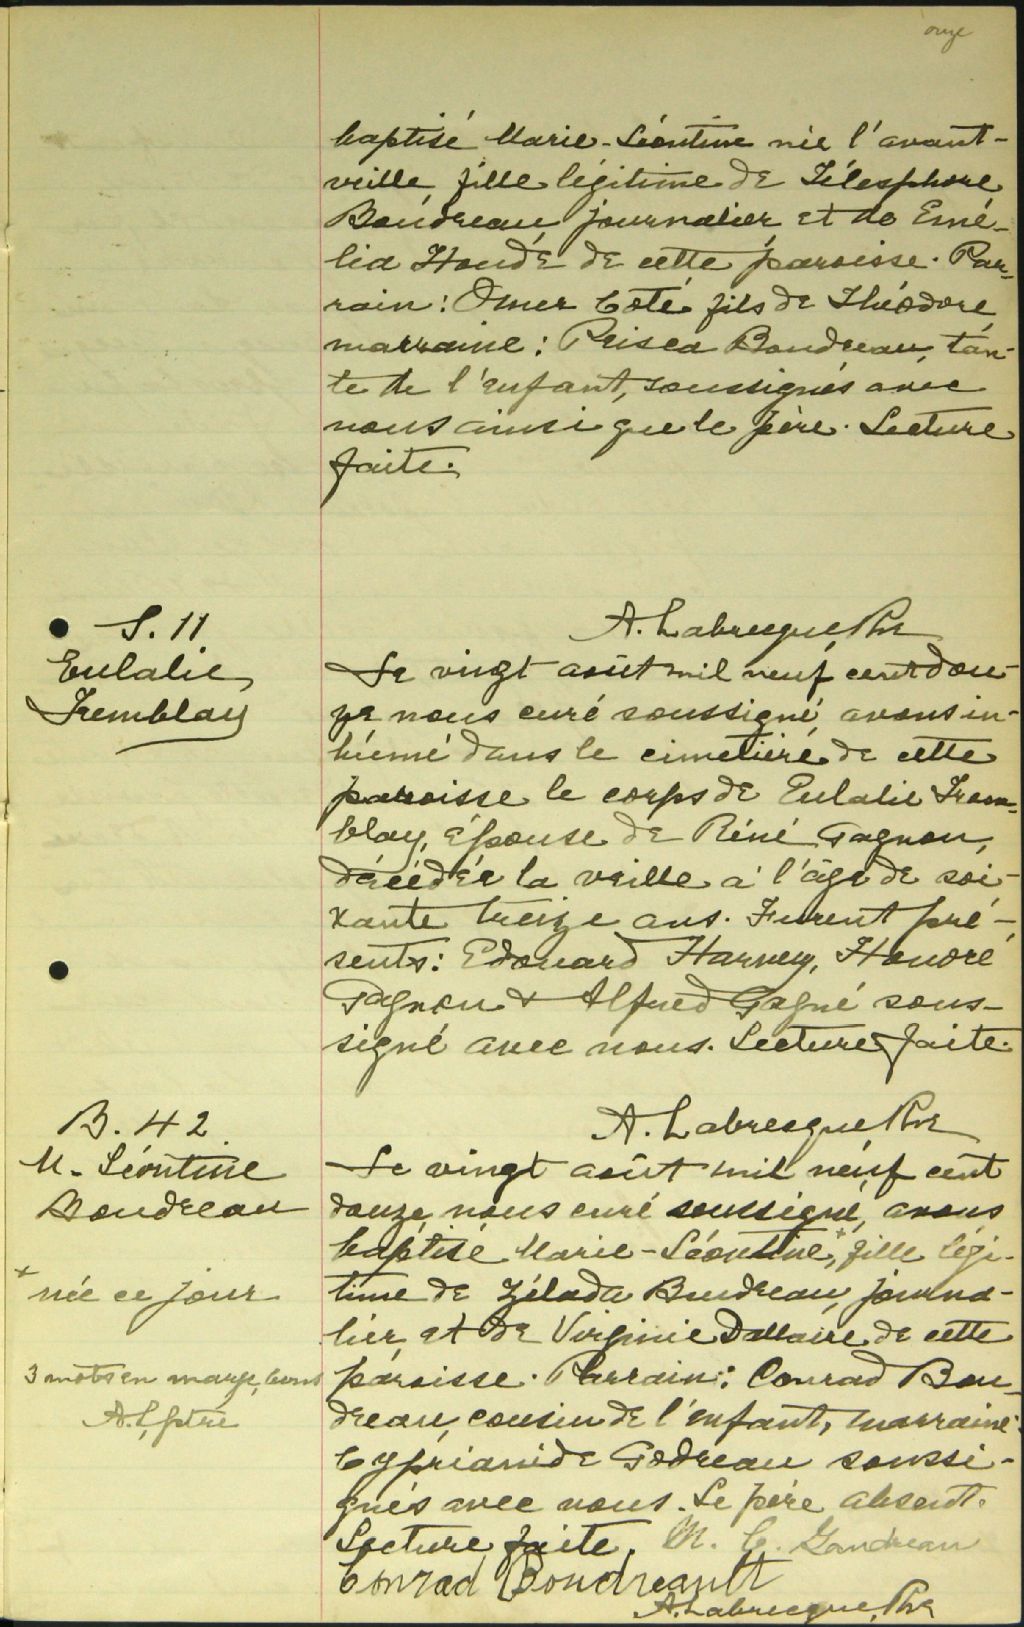 onze
baptisé Marie-Léontine née l'avant-
veille fille légitime de Télesphore
Boudreau journalier et de Emé-
lia Houde de cette paroisse. Par-
rain: Omer Coté fils de Théodore,
marraine: Prisca Boudreau, tan-
te de l'enfant, soussignés avec
nous ainsi que le père. Lecture
faite.
A. Labrecque Ptre
S. 11
Eulalie
Tremblay
Le vingt août mil neuf cent dou-
ze nous curé soussigné, avons in-
humé dans le cimetière de cette
paroisse le corps de Eulalie Trem-
blay, épouse de Réné Gagnon,
décédée la veille à l'âge de soi-
xante treize ans. Furent pré-
sents: Edouard Harvey, Honoré
Gagnon & Alfred Gagné sous-
signé avec nous. Lecture faite.
A. Labrecque Ptre
B. 42
M. Léontine
Boudreau
+
née ce jour
3 mots en marge, bons
A. L. ptre
Le vingt août mil neuf cent
douze, nous curé soussigné, avons
baptisé Marie-Léontine,+ fille légi-
time de Zélada Boudreau, journa-
lier, et de Virginie Dallaire de cette
paroisse. Parrain: Conrad Bou-
dreau, cousin de l'enfant, marraine:
Cyprianide Godreau soussi-
gnés avec nous. Le père absent.
Lecture faite. M. C. Gaudreau
Conrad Boudreault
A. Labrecque, Ptre